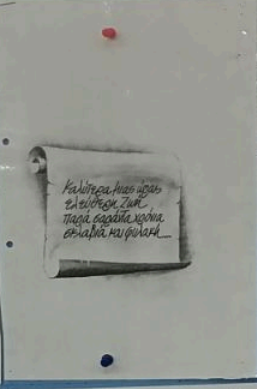 Καλύτερα μιας ώρας
ελεύθερη ζωή
παρά σαράντα χρόνια
σκλαβιά και φυλακή